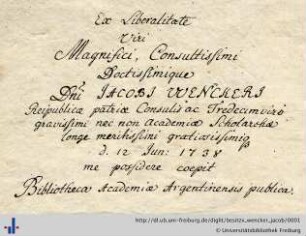 Ex Liberalitate
Viri
Magnifici, Consultissimi
Doctissimique
Dni. JACOBI WENCKERI
Reipublicæ patriæ Consulis ac Tredecimviri
gravissimi nec non Academiæ Scholarchæ
longe meritissimi gratiosissimiq
d. 12 Jun: 1738
me possidere coepit
Bibliotheca Academiæ Argentinensis publica.
http://dl.ub.uni-freiburg.de/diglit/besitzv_wencker_jacob/0001
© Universitätsbibliothek Freiburg